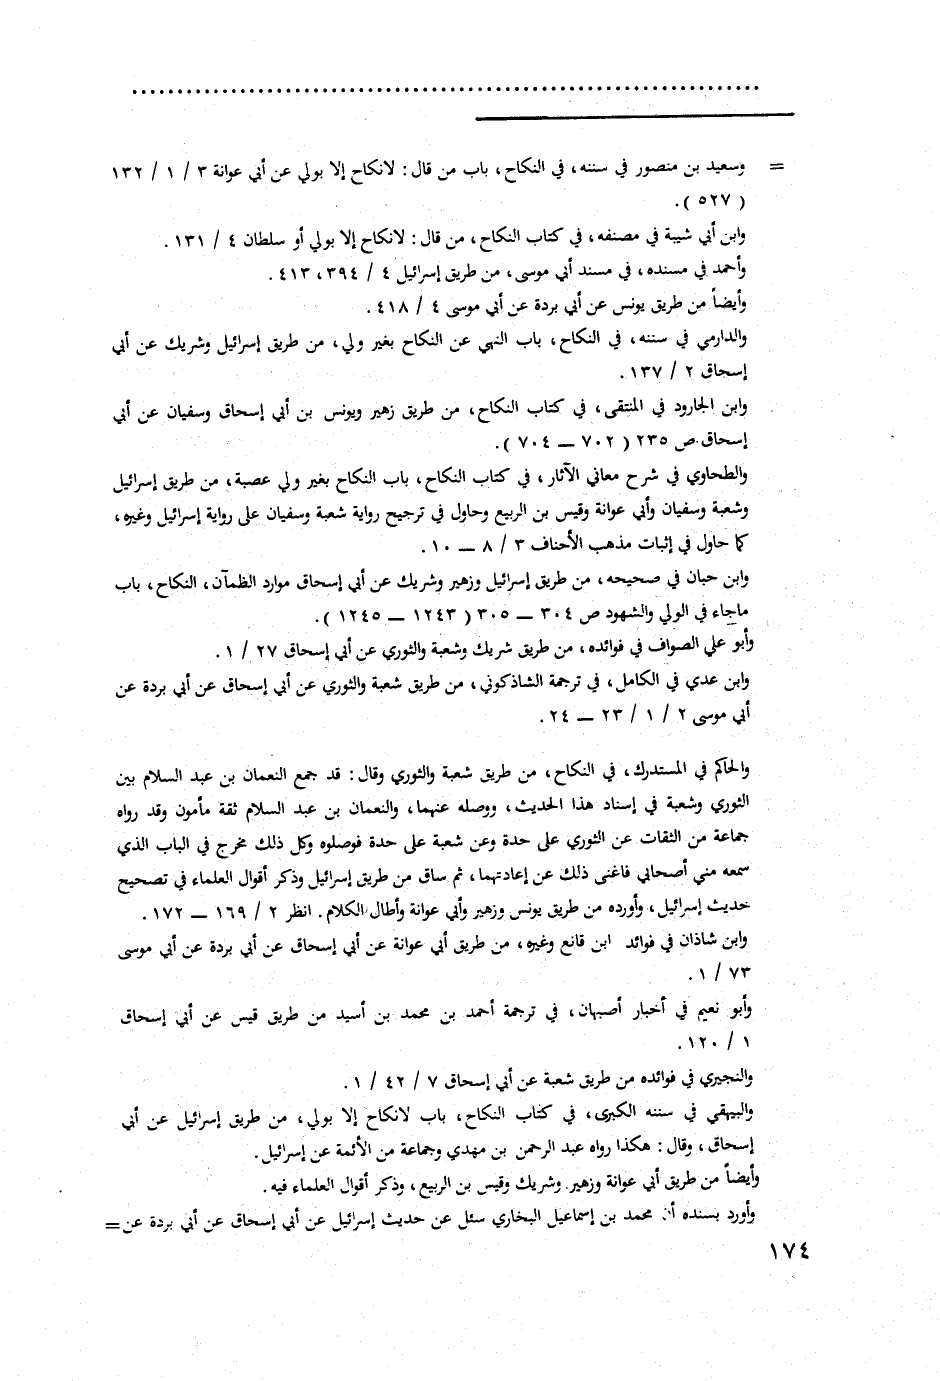 = وسعيد بن منصور في سننه، في النكاح، باب من قال: لانكاح إلا بولي عن أبي عوانة ٣ / ١ / ١٣٢
( ٥٢٧ ).
وابن أبي شيبة في مصنفه، في كتاب النكاح، من قال: لانكاح إلا بولي أو سلطان ٤ / ١٣١.
وأحمد في مسنده، في مسند أبي موسى، من طريق إسرائيل ٤ / ٣٩٤، ٤١٣.
وأيضاً من طريق يونس عن أبي بردة عن أبي موسى ٤ / ٤١٨.
والدارمي في سننه، في النكاح، باب النهي عن النكاح بغير ولي، من طريق إسرائيل وشريك عن أبي
إسحاق ٢ / ١٣٧.
وابن الجارود في المنتقى، في كتاب النكاح، من طريق زهير ويونس بن أبي إسحاق وسفيان عن أبي
إسحاق ص ٢٣٥ ( ٧٠٢ — ٧٠٤ ).
والطحاوي في شرح معاني الآثار، في كتاب النكاح، باب النكاح بغير ولي عصبة، من طريق إسرائيل
وشعبة وسفيان وأبي عوانة وقيس بن الربيع وحاول في ترجيح رواية شعبة وسفيان على رواية إسرائيل وغيره،
كما حاول في إثبات مذهب الأحناف ٣ / ٨ — ١٠.
وابن حبان في صحيحه، من طريق إسرائيل وزهير وشريك عن أبي إسحاق موارد الظمآن، النكاح، باب
ماجاء في الولي والشهود ص ٣٠٤ — ٣٠٥ ( ١٢٤٣ — ١٢٤٥ ).
وأبو علي الصواف في فوائده، من طريق شريك وشعبة والثوري عن أبي إسحاق ٢٧ / ١.
وابن عدي في الكامل، في ترجمة الشاذكوني، من طريق شعبة والثوري عن أبي إسحاق عن أبي بردة عن
أبي موسى ٢ / ١ / ٢٣ — ٢٤.
والحاكم في المستدرك، في النكاح، من طريق شعبة والثوري وقال: قد جمع النعمان بن عبد السلام بين
الثوري وشعبة في إسناد هذا الحديث، ووصله عنهما، والنعمان بن عبد السلام ثقة مأمون وقد رواه
جماعة من الثقات عن الثوري على حدة وعن شعبة على حدة فوصلوه وكل ذلك مخرج في الباب الذي
سمعه مني أصحابي فاغنى ذلك عن إعادتهما، ثم ساق من طريق إسرائيل وذكر أقوال العلماء في تصحيح
حديث إسرائيل، وأورده من طريق يونس وزهير وأبي عوانة وأطال الكلام. انظر ٢ / ١٦٩ — ١٧٢.
وابن شاذان في فوائد ابن قانع وغيره، من طريق أبي عوانة عن أبي إسحاق عن أبي بردة عن أبي موسى
٧٣ / ١.
وأبو نعيم في أخبار أصبهان، في ترجمة أحمد بن محمد بن أسيد من طريق قيس عن أبي إسحاق
١ / ١٢٠.
والنجيري في فوائده من طريق شعبة عن أبي إسحاق ٧ / ٤٢ / ١.
والبيهقي في سننه الكبرى، في كتاب النكاح، باب لانكاح إلا بولي، من طريق إسرائيل عن أبي
إسحاق، وقال: هكذا رواه عبد الرحمن بن مهدي وجماعة من الأئمة عن إسرائيل.
وأيضاً من طريق أبي عوانة وزهير وشريك وقيس بن الربيع، وذكر أقوال العلماء فيه.
وأورد بسنده أن محمد بن إسماعيل البخاري سئل عن حديث إسرائيل عن أبي إسحاق عن أبي بردة عن=
١٧٤